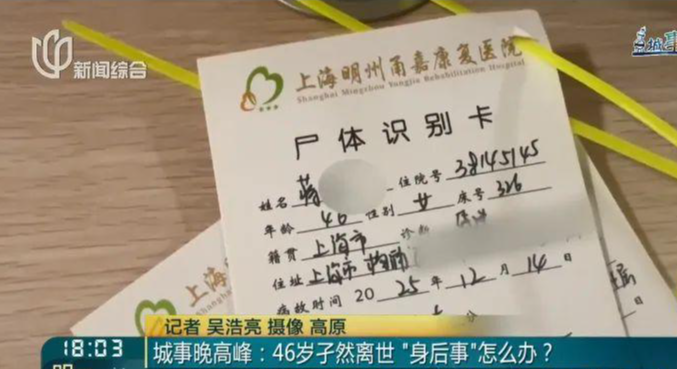 新闻综合
上海明州甬嘉康复医院
Shanghai Mingzhou Yongjia Rehabilitation Hospital
尸体识别卡
姓名 蒋 住院号 38145145
年龄 46 性别 女 床号 326
籍贯 上海市 诊断
住址 上海市
病故时间 2025年12月14日
上海
Shanghai
记者 吴浩亮 摄像 高原
18:03
城事晚高峰：46岁孑然离世 "身后事"怎么办？